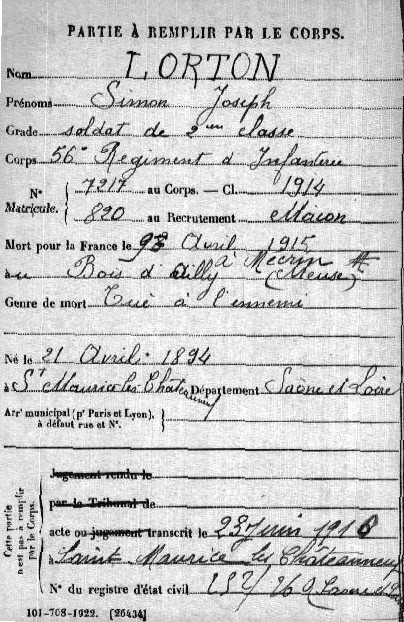 PARTIE À REMPLIR PAR LE CORPS.
Nom LORTON
Prénoms Simon Joseph
Grade soldat de 2eme classe
Corps 56e Régiment d'Infanterie
N° Matricule. 7217 au Corps. — Cl. 1914
820 au Recrutement Macon
Mort pour la France le Avril 1915
à au Bois d'Ailly à Mecrin (Meuse)
Genre de mort Tué à l'ennemi
Né le 21 Avril 1894
à St Maurice les Chateauneuf Département Saône et Loire
Arrt municipal (pr Paris et Lyon), à défaut rue et N°.
Cette partie n'est pas à remplir par le Corps.
Jugement rendu le
par le Tribunal de
acte ou jugement transcrit le 23 Juin 1916
à Saint Maurice les Châteauneuf
N° du registre d'état civil
101-708-1922. [26434]